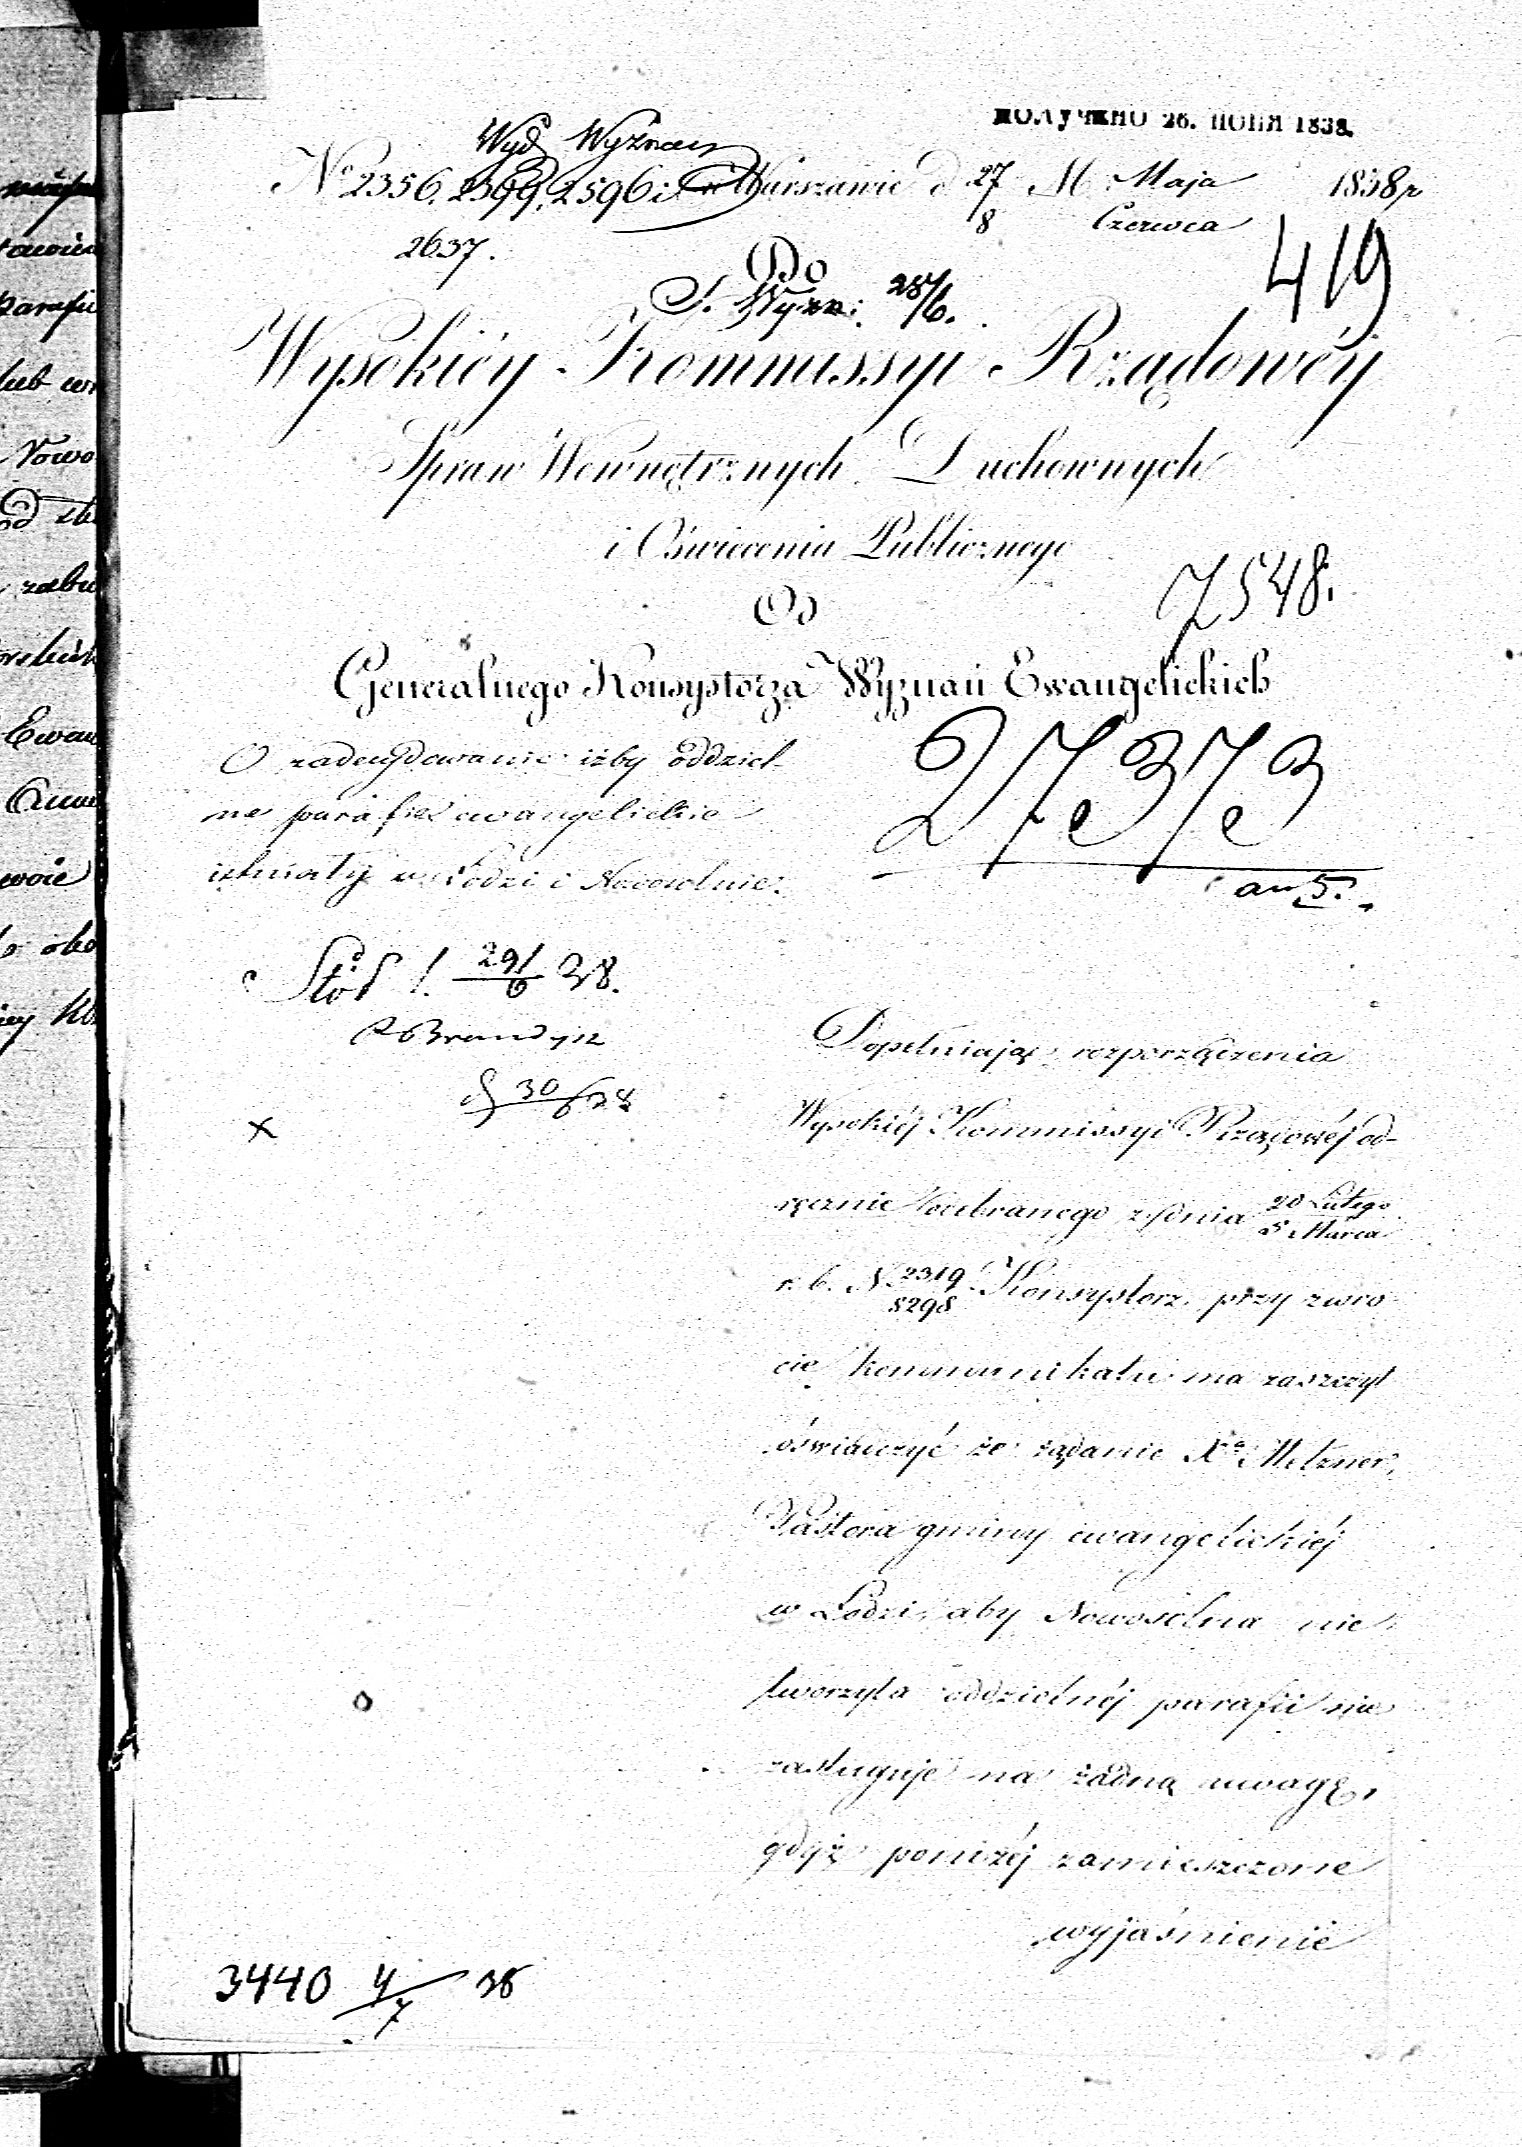 ПОЛУЧЕНО 26. ІЮНЯ 1838.
Wyd Wyznań
No 2356, 2399, 2596 i w Warszawie d 27 M. Maja 1838 r
8 Czerwca
2637.
419
Do
S. Wyzn: 28/6.
Wysokiéy Kommissyi Rządowéy
Spraw Wewnętrznych Duchownych
i Oświecenia Publicznego
7548.
Od
Generalnego Konsystorza Wyznań Ewangelickich
O zadecydowanie iżby oddziel-
ne parafie ewangelickie
istniały w Łodzi i Nowosolnie.
27373
an 5.
29/6 38.
30/6 38
x
Dopełniając rozporządzenia
Wysokiéj Kommissyi Rządowéj od-
ręcznie odebranego z dnia 20 Lutego
5 Marca
r. b. N 2319
8298 Konsystorz przy zwro-
cie kommunikatu ma zaszczyt
oświadczyć że żądanie Xa Metzner,
Pastora gminy ewangelickiéj
w Łodzi, aby Nowosolna nie
tworzyła oddzielnéj parafii nie
zasługuje na żadną uwagę,
gdyż poniżéj zamieszczone
wyjaśnienie
3440 4/7 38